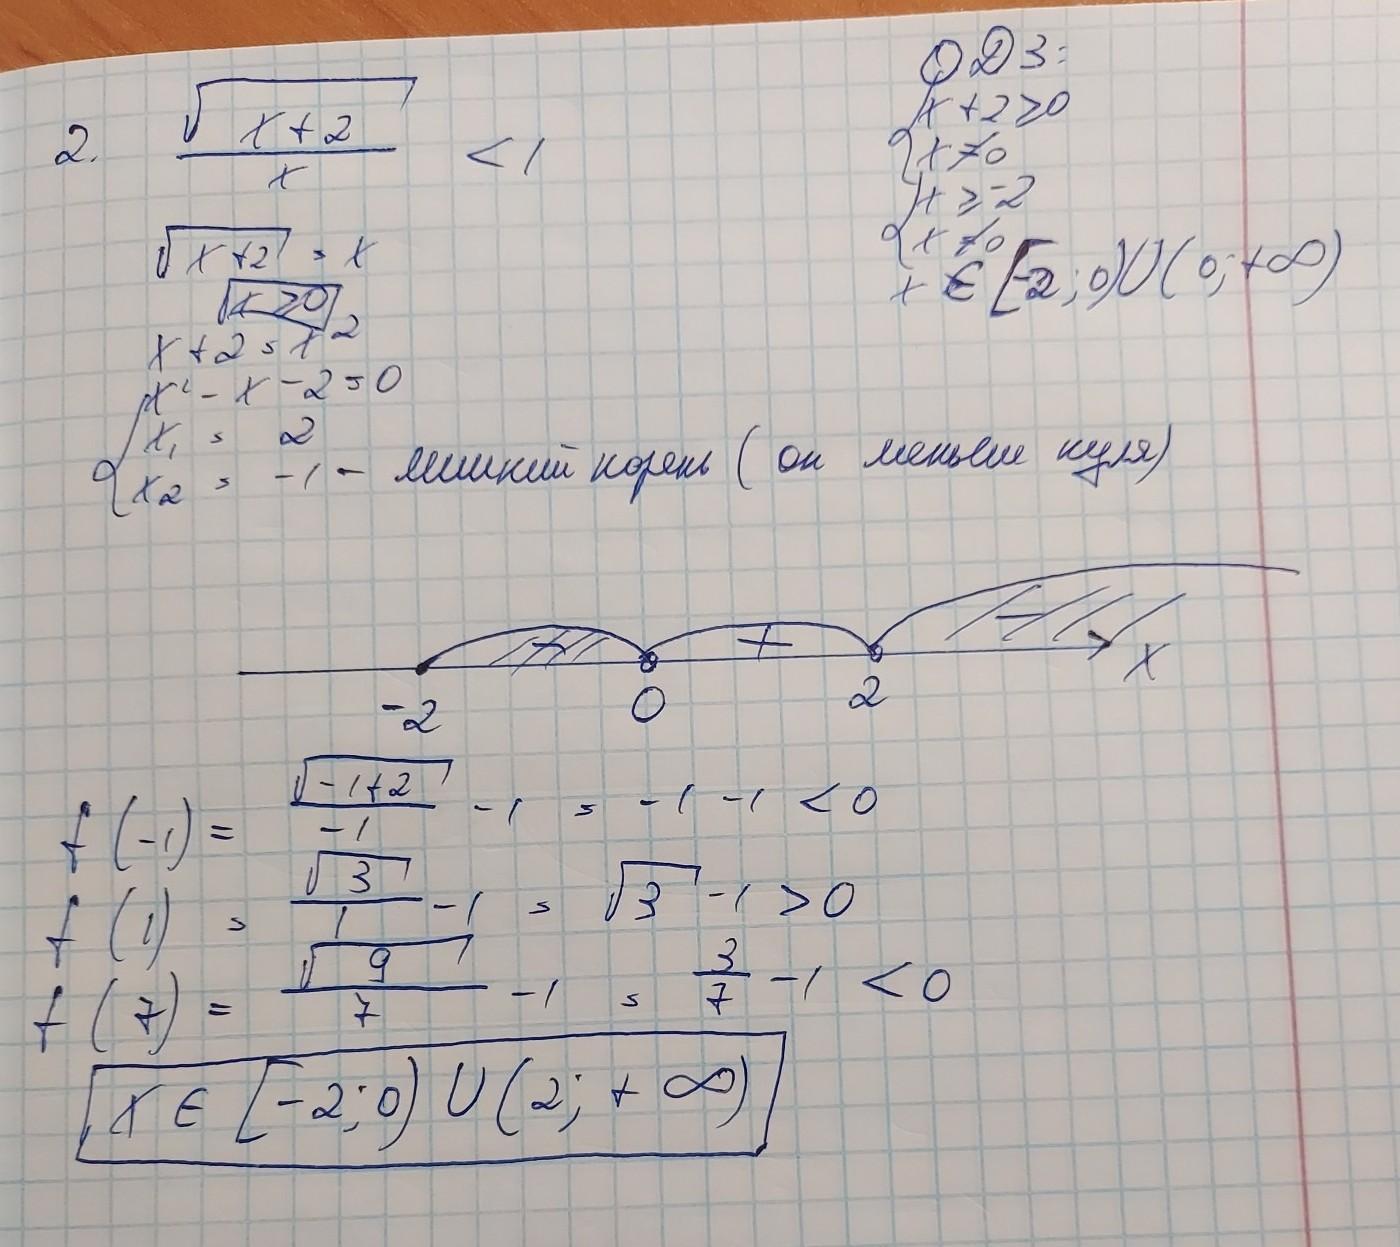 2. √(x+2)/x < 1
ОДЗ:
{x+2≥0
x≠0
{x≥-2
x≠0
x∈[-2;0)∪(0;+∞)
√(x+2) = x
x≥0
x+2=x²
x²-x-2=0
x₁ = 2
x₂ = -1 - лишний корень (он меньше нуля)
+
-2 0 2 x
f(-1) = √(-1+2)/-1 -1 = -1 -1 < 0
f(1) = √3/1 -1 = √3 -1 > 0
f(7) = √9/7 -1 = 3/7 -1 < 0
x∈[-2;0)∪(2;+∞)